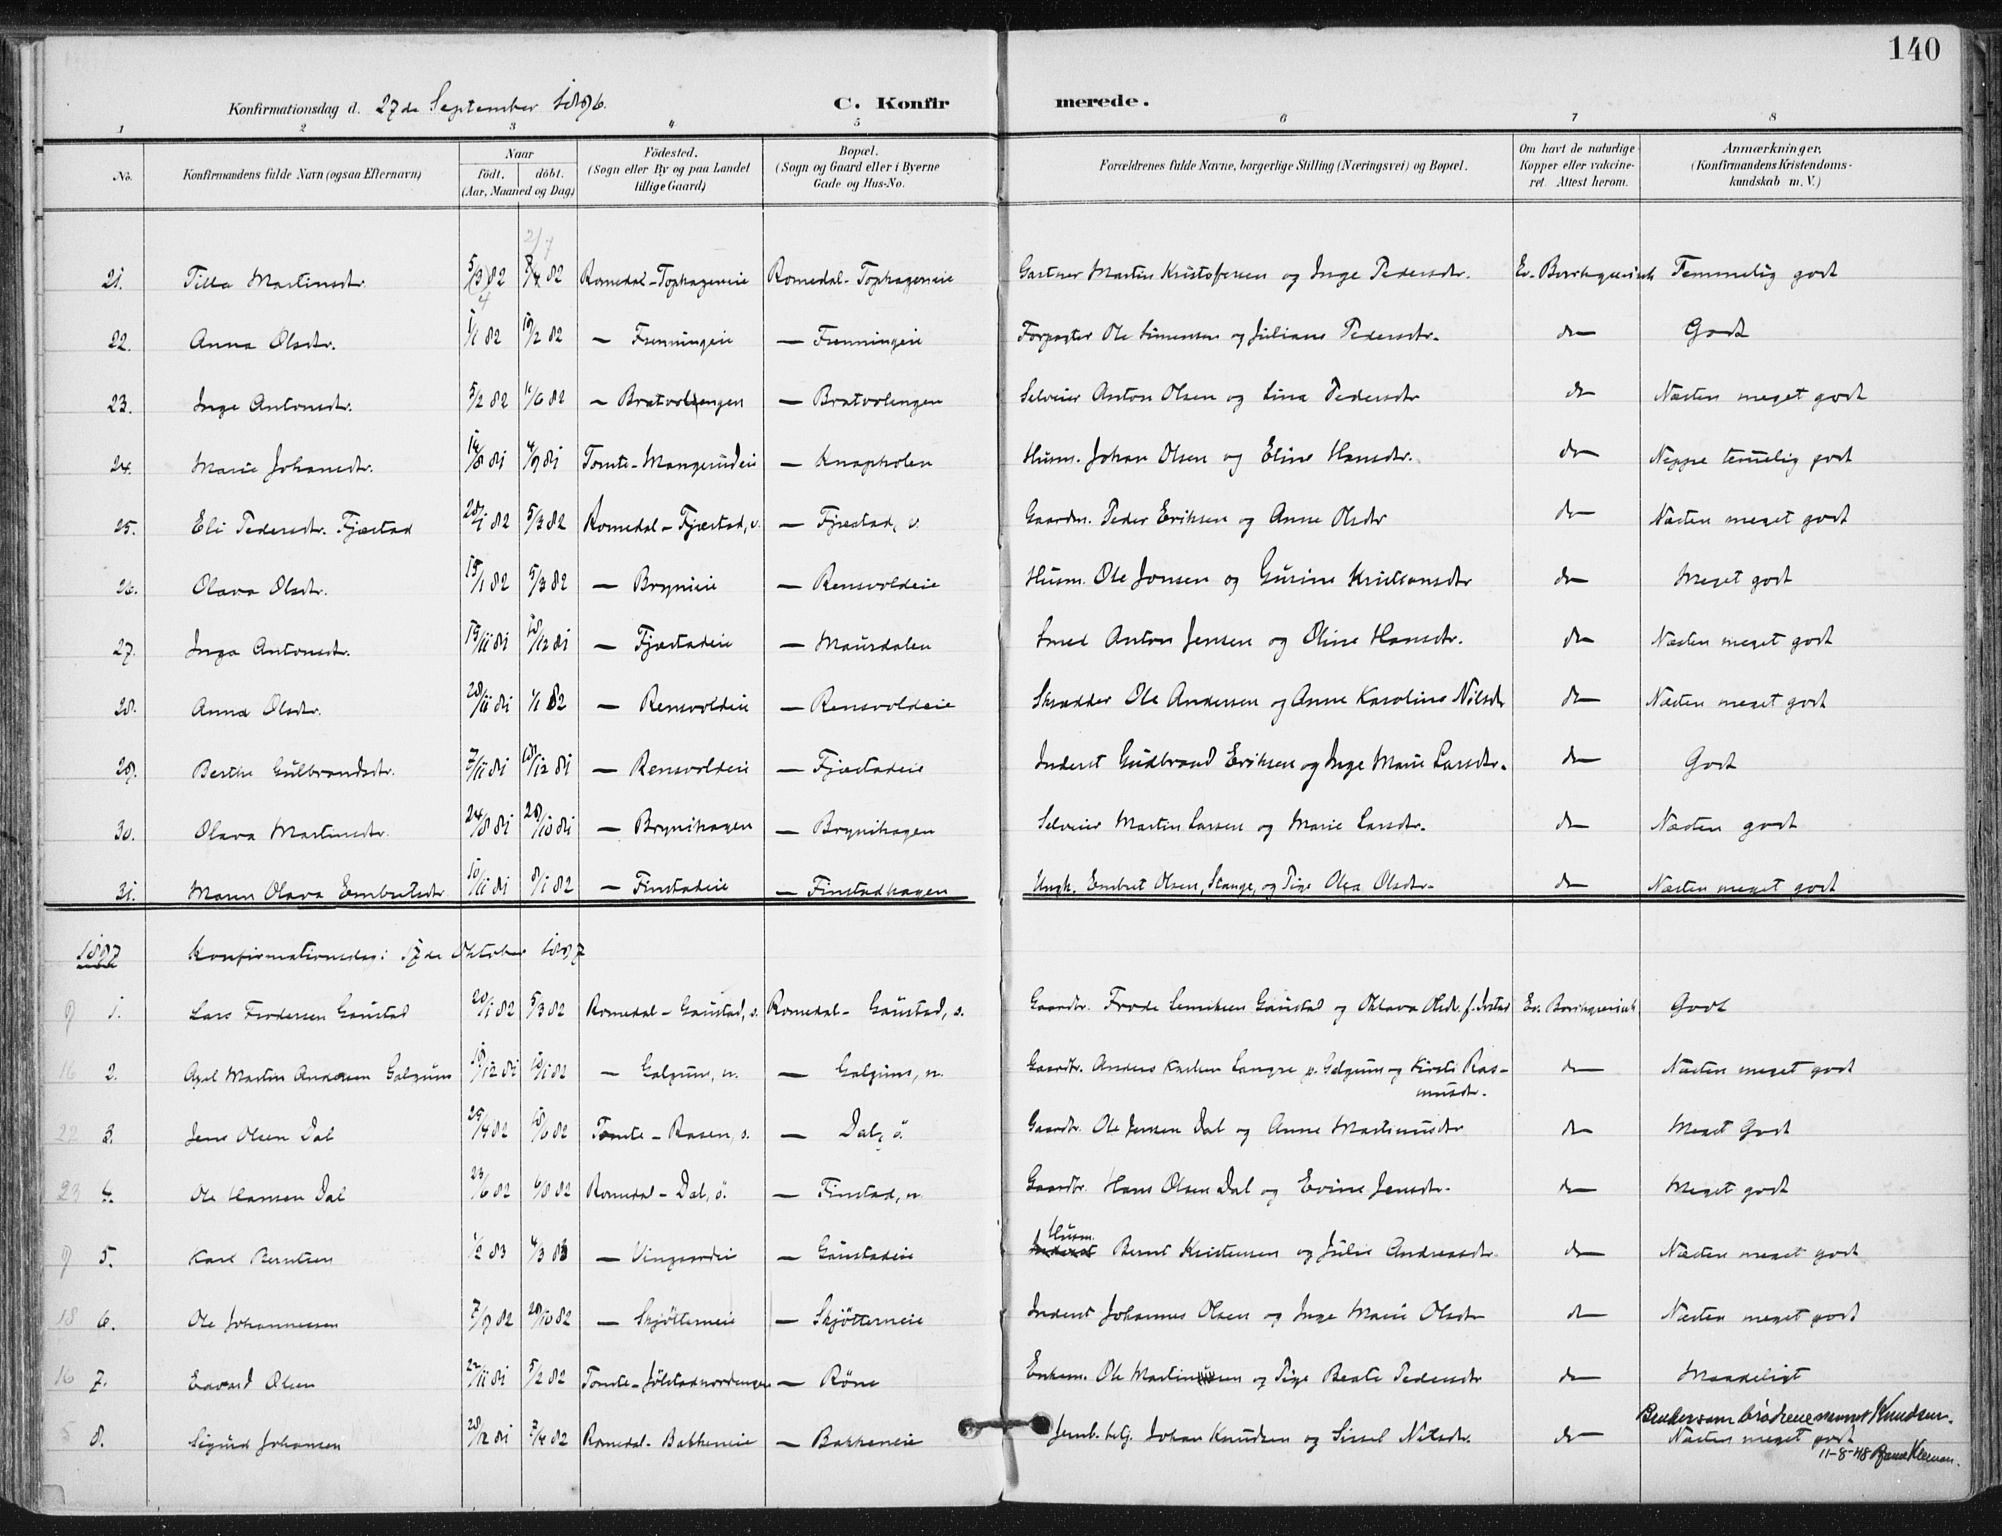 140
Konfirmationsdag d. 27de September 1896.
C. Konfirmerede.
1 2 3 4 5 6 7 8
No. Konfirmandens fulde Navn (ogsaa Efternavn) Naar födt. döbt. (Aar, Maaned og Dag) Födested. (Sogn eller By og paa Landet tillige Gaard) Bopæl. (Sogn og Gaard eller i Byerne Gade og Hus-No. Forældrenes fulde Navne, borgerlige Stilling (Næringsvei) og Bopæl. Om havt de naturlige Kopper eller vakcineret. Attest herom. Anmærkninger. (Konfirmandens Kristendomskundskab m. V.)
2/7
21. Tilla Martinsdtr. 5/3 82 82 Romedal - Tophageneie Romedal - Tophageneie Gartner Martin Kristofersen og Inge Pedersdtr. Ev. Temmelig godt
4
22. Anna Olsdtr. 1/1 82 19/2 82 — Frenningeie — Frenningeie Forpagter Ole Simensen og Juliane Pedersdtr. do Godt
23. Inge Antonsdtr. 5/2 82 11/6 82 — Bratvolengen — Bratvolengen Selveier Anton Olsen og Lina Pedersdtr do Næsten meget godt
24. Marie Johansdtr. 14/8 81 4/9 81 Tomte - Mangerudeie — Knapholen Husm. Johan Olsen og Eline Hansdtr. do Neppe temelig godt
25. Eli Pedersdtr. Fjæstad 28/1 82 5/3 82 Romedal - Fjæstad, v. — Fjæstad, v. Gaardm. Peder Eriksen og Anne Olsdtr do Næsten meget godt
26. Olava Olsdtr. 15/1 82 5/3 82 — Brynieie — Rensvoldeie Husm. Ole Jonsen og Gurine Kristiansdtr do Meget godt
27. Inga Antonsdtr. 19/11 81 18/12 81 — Fjæstadeie — Maurdalen Smed Anton Jensen og Oline Hansdtr. do Næsten meget godt
28. Anna Olsdtr. 28/11 81 1/1 82 — Rensvoldeie — Rensvoldeie Skrædder Ole Andersen og Anne Karoline Nilsdtr do Næsten meget godt
29. Berthe Gulbrandsdtr. 7/11 81 18/12 81 — Rensvoldeie — Fjæstadeie Inderst Gudbrand Eriksen og Inge Marie Larsdtr. do Godt
30. Olava Martinsdtr. 24/8 81 28/10 81 — Brynihagen — Brynihagen Selveier Martin Larsen og Marie Larsdtr. do Næsten godt
31. Maren Olava Embretsdtr 10/11 81 8/1 82 — Finstadeie — Finstadhagen Ungk. Embret Olsen, Stange, og Pige Olea Olsdtr. do Næsten meget godt
1897 Konfirmationsdag: 17de Oktober 1897
9 1. Lars Frodesen Gaustad 20/1 82 5/3 82 Romedal - Gaustad, s. Romedal - Gaustad, s. Gaardbr. Frode Gaustad og Oklava Olsdtr. Ev. Godt
16 2. Axel Martin Andersen Galgum 19/12 81 82 — Galgum, n. — Galgum, n. Gaardbr. Anders Langse p. Galgum og Kirsti Ras-
musdtr. do Næsten meget godt
22 3. Jens Olsen Dal 25/4 82 18/6 82 Tomte - Rasen, s. — Dal, ö. Gaardbr. Ole Jensen Dal og Anne Martinusdtr do Meget Godt
23 4. Ole Hansen Dal 23/6 82 6/8 82 Romedal - Dal, ö. — Finstad, n. Gaardbr. Hans Olsen Dal og Evine Jensdtr. do Meget godt
9 5. Karl Berntsen 1/2 83 4/3 83 — Vingaardeie — Gaustadeie Husm. Inderst Bernt Kristensen og Julie Andreasdtr. do Næsten meget godt
18 6. Ole Johannessen 7/9 82 28/10 82 — Skjötterneie — Skjötterneie Inderst Johannes Olsen og Inge Marie Olsdtr do Næsten meget godt
16 7. Edvard Olsen 22/11 81 5/2 82 Tomte - Jölstadnordengen — Röne Enkem. Ole Martinsen og Pige Beate Pedersdtr do Maadeligt
5 8. Sigurd Johansen 28/12 81 7/4 82 Romedal - Bakkeneie — Bakkeneie Jernb. betj. Johan Knudsen og Sissel Nilsdtr. do Næsten meget godt
Bruker som brødrene navnet Knudsen.
11-8-48